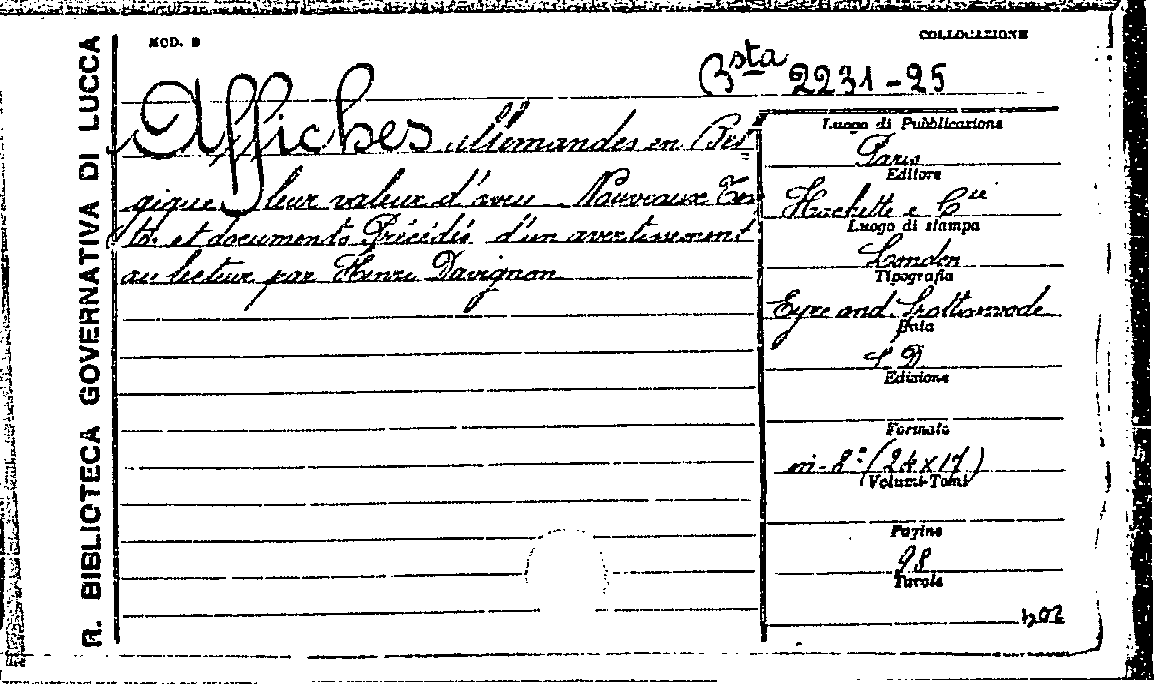 R. BIBLIOTECA GOVERNATIVA DI LUCCA
MOD. B
COLLOCAZIONE
Bsta 2231-25
Affiches allemandes en Bel
gique leur valeur d'aveu Nouveaux Tex
tes et documents Précédés d'un avertissement
au lecteur par Henri Davignon
Luogo di Pubblicazione
Paris
Editore
Hachette e Cie
Luogo di stampa
London
Tipografia
Eyre and Spottiswoode
Data
S D
Edizione
Formato
in-8° (24x17)
Volumi-Tomi
Pagine
98
Tavole